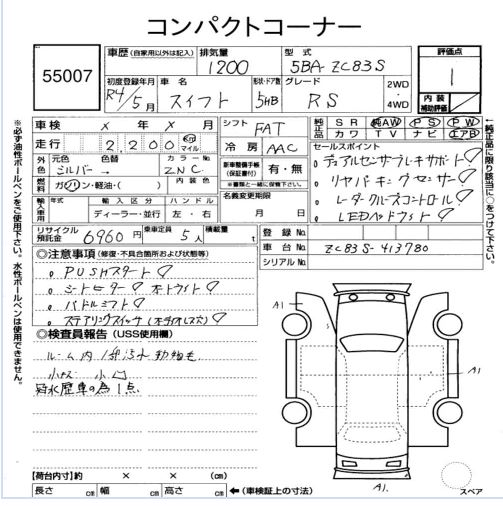 コンパクトコーナー
55007
車歴 (自家用以外は記入) 排気量 型式
1200 5BA-ZC83S
初度登録年月 車名 形状・ドア数 グレード
R4/5月 スイフト 5HB RS 2WD・4WD
評価点
1
内装
補助評価
車検 年 月
走行 2,200 km マイル
シフト FAT
冷房 AAC
純正品 SR 純AW PS PW
カワ TV ナビ エアB
外色 元色 色替 カラーNo.
シルバー → ZNC
燃料 ガソリン・軽油・( ) 内装色
新車整備手帳(保証書付) 有・無
※書類と一緒に保管下さい。
セールスポイント
デュアルセンサーブレーキサポート
リヤパーキングセンサー
レーダークルーズコントロール
LEDヘッドライト
輸入車用 年式 輸入区分 ハンドル
ディーラー・並行 左・右
名義変更期限
月 日
リサイクル預託金 6960円 乗車定員 5人 積載量 t
登録No.
車台No. ZC83S-413780
シリアルNo.
◎注意事項 (修復・不具合箇所および状態等)
。PUSHスタート
。シートヒーター オートライト
。パドルシフト
。ステアリングスイッチ
◎検査員報告 (USS使用欄)
ルーム内
小キズ 小凹
冠水歴車の為1点
【荷台内寸】約 × × (cm)
長さ cm 幅 cm 高さ cm ←(車検証上の寸法)
A1
A1
A1.
スペア
※必ず油性ボールペンをご使用下さい。水性ボールペンは使用できません。
↑純正品に限り該当に○をつけて下さい。